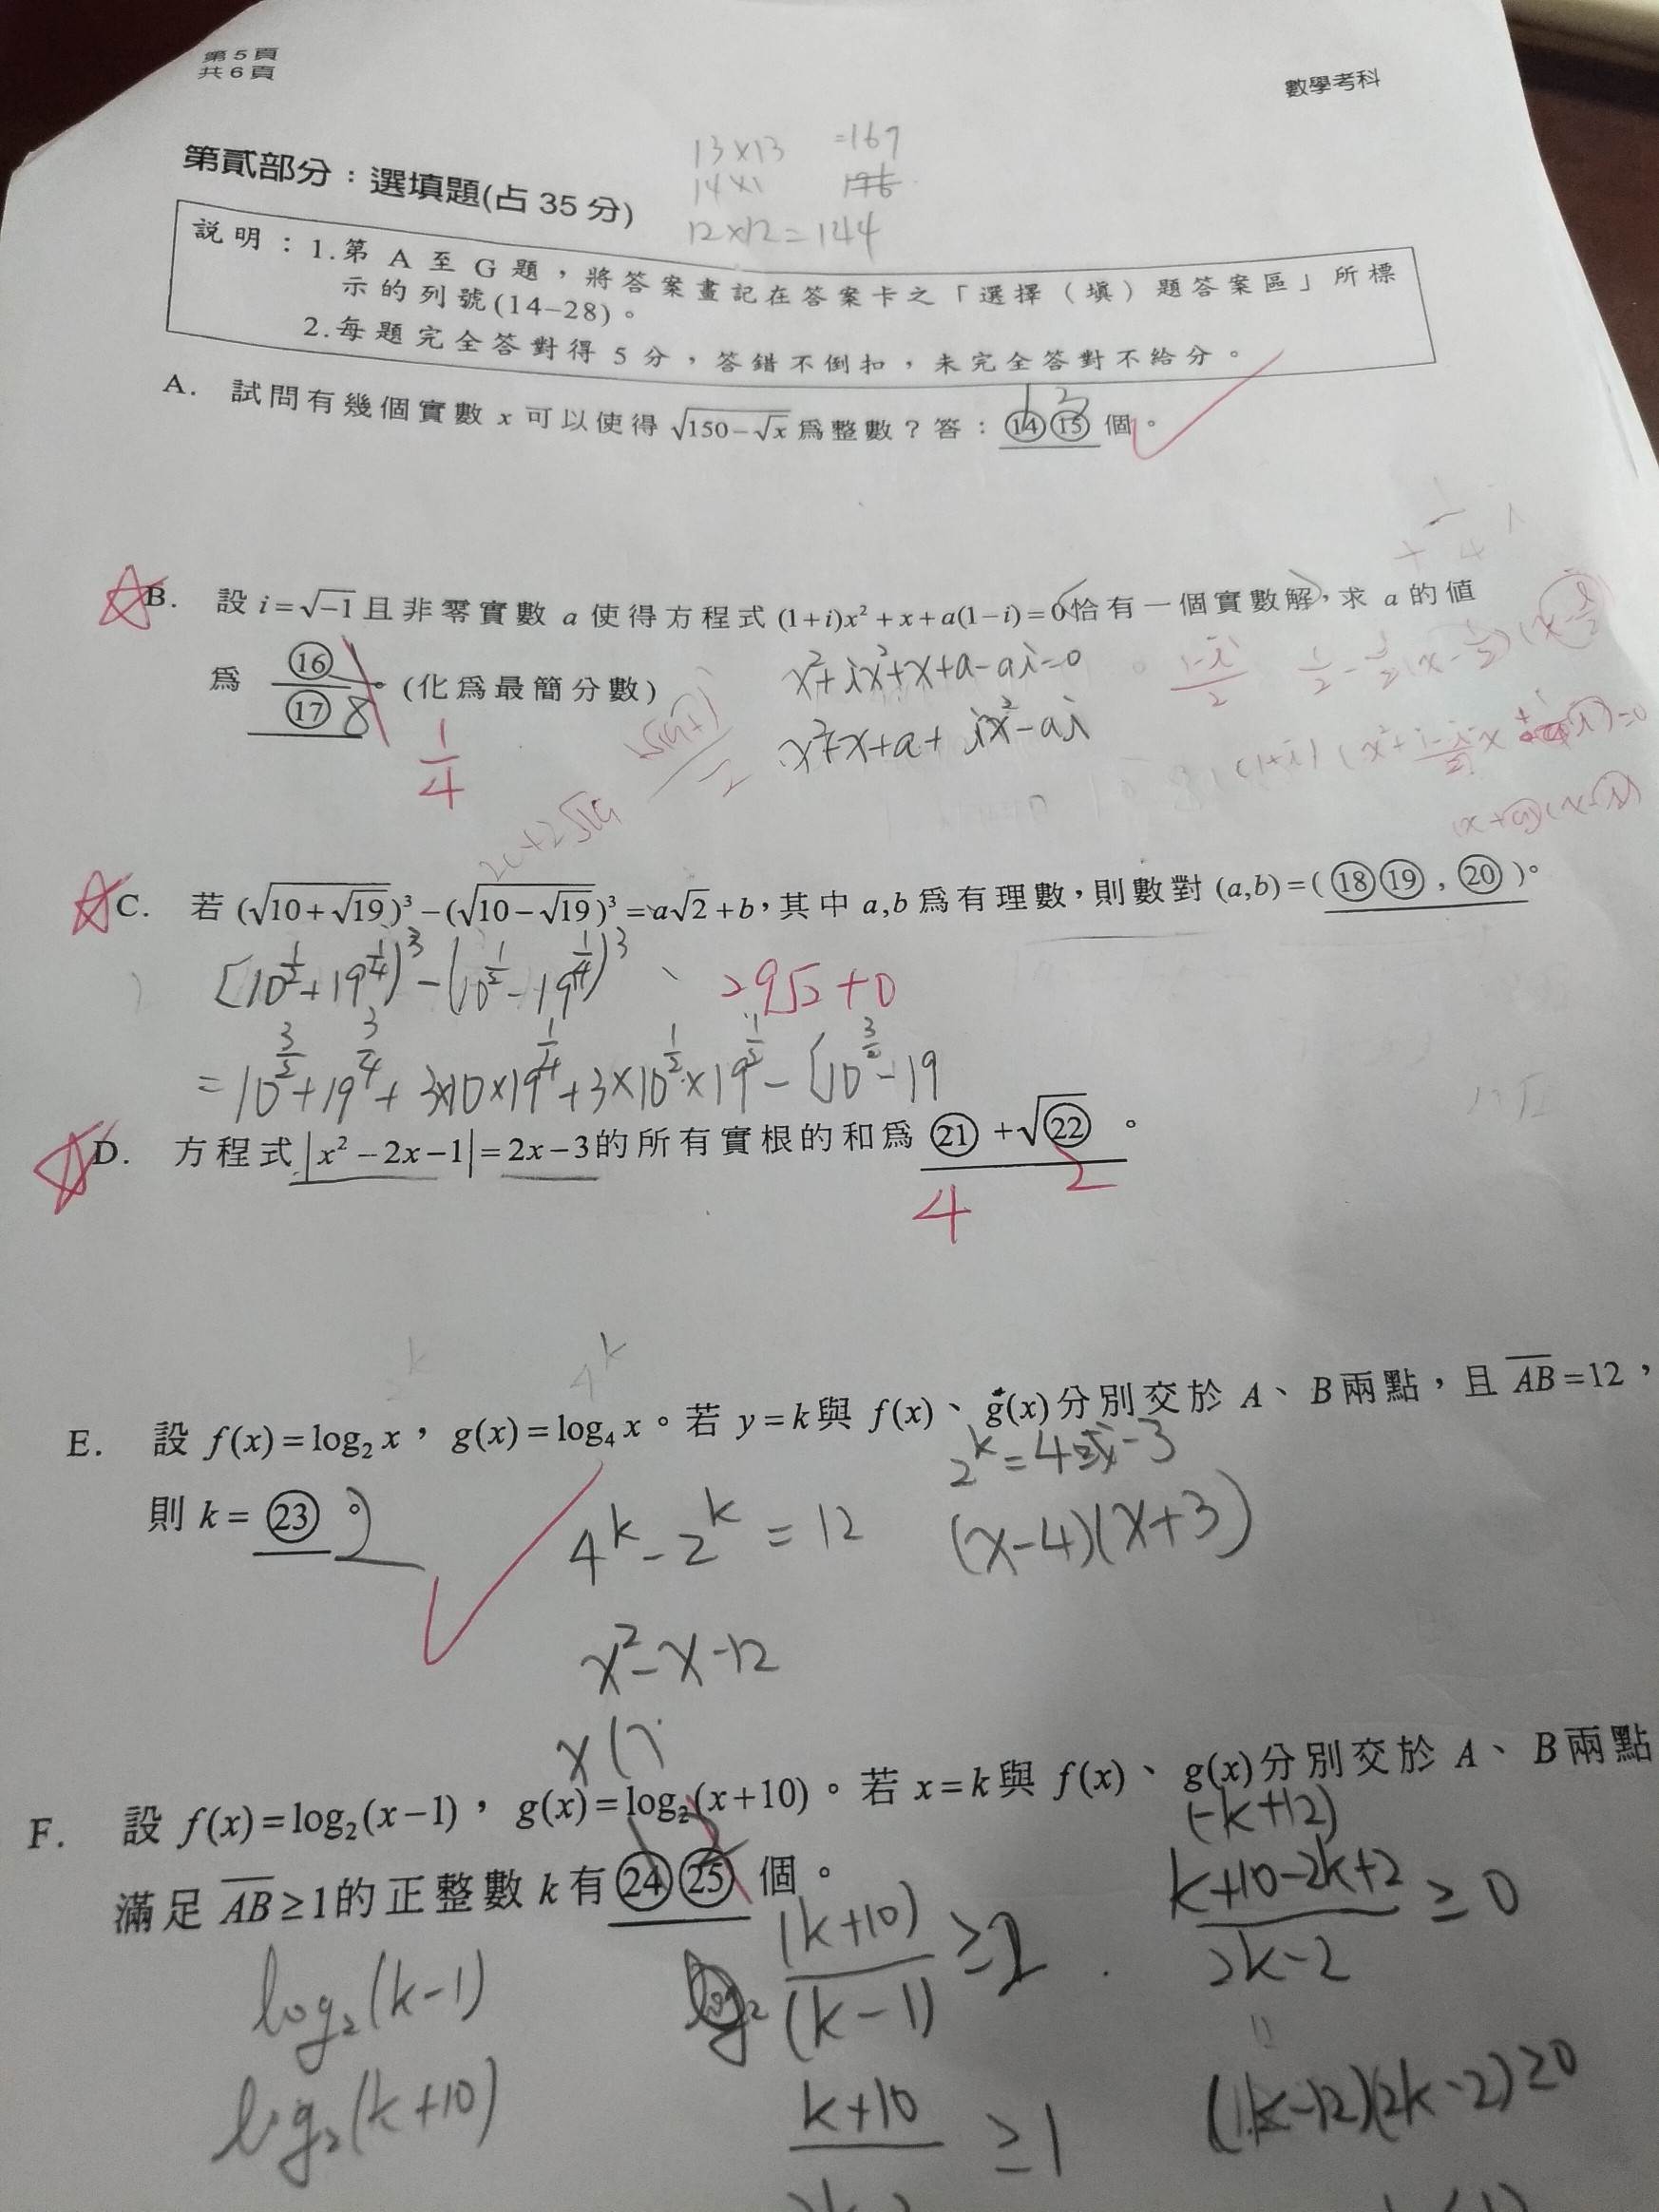 第5頁
共6頁
數學考科
13×13 =169
14×1 196
12×12=144
第貳部分：選填題(占35分)
說明：1.第A至G題，將答案畫記在答案卡之「選擇（填）題答案區」所標
示的列號(14–28)。
2.每題完全答對得5分，答錯不倒扣，未完全答對不給分。
A. 試問有幾個實數 x 可以使得 √(150−√x) 為整數？答：⑭⑮個。
13
B. 設 i=√−1 且非零實數 a 使得方程式 (1+i)x²+x+a(1−i)=0 恰有一個實數解，求 a 的值
為 ⑯/⑰。(化為最簡分數)
1/8
1/4
x²+ix²+x+a−ai=0
x²+x+a+ix²−ai
(1−i)/2
C. 若 (√(10+√19))³−(√(10−√19))³=a√2+b，其中 a,b 為有理數，則數對 (a,b)=(⑱⑲,⑳)。
[10^(1/2)+19^(1/4))³−(10^(1/2)−19^(1/4))³
29√2+0
=10^(3/2)+19^(3/4)+3×10×19^(1/4)+3×10^(1/2)×19^(1/2)−[10^(3/2)−19
D. 方程式 |x²−2x−1|=2x−3 的所有實根的和為 ㉑+√㉒。
4 2
2^k 4^k
E. 設 f(x)=log₂x，g(x)=log₄x。若 y=k 與 f(x)、g(x) 分別交於 A、B 兩點，且 AB=12，
則 k=㉓。
2
4^k−2^k=12
(x−4)(x+3)
x²−x−12
x(
F. 設 f(x)=log₂(x−1)，g(x)=log₂(x+10)。若 x=k 與 f(x)、g(x) 分別交於 A、B 兩點
滿足 AB≥1 的正整數 k 有㉔㉕個。
(−k+12)
(k+10−2k+2)/(2k−2)≥0
log₂(k−1)
log₂ (k+10)/(k−1)≥2
log₂(k+10)
k+10 ≥1
(k−12)(2k−2)≥0